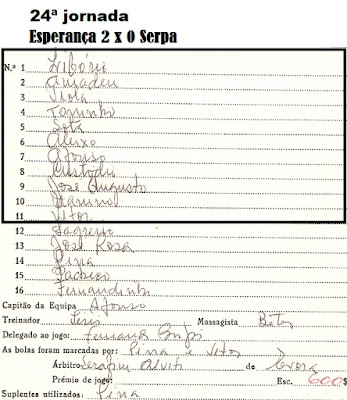 24ª jornada
Esperança 2 x 0 Serpa
N.º 1 Libório
2 Amadeu
3 Viola
4 Toninho
5 Sota
6 Aleixo
7 Afonso
8 Custódio
9 José Augusto
10
11 Vítor
12
13 José Rosa
14 Pina
15 Pacheco
16 Fernandinho
Capitão da Equipa Afonso
Treinador Massagista
Delegado ao jogo: Fernando
As bolas foram marcadas por: Pina e Vítor
Árbitro Serafim de Évora
Prémio de jogo: Esc. 600$
Suplentes utilizados: Pina